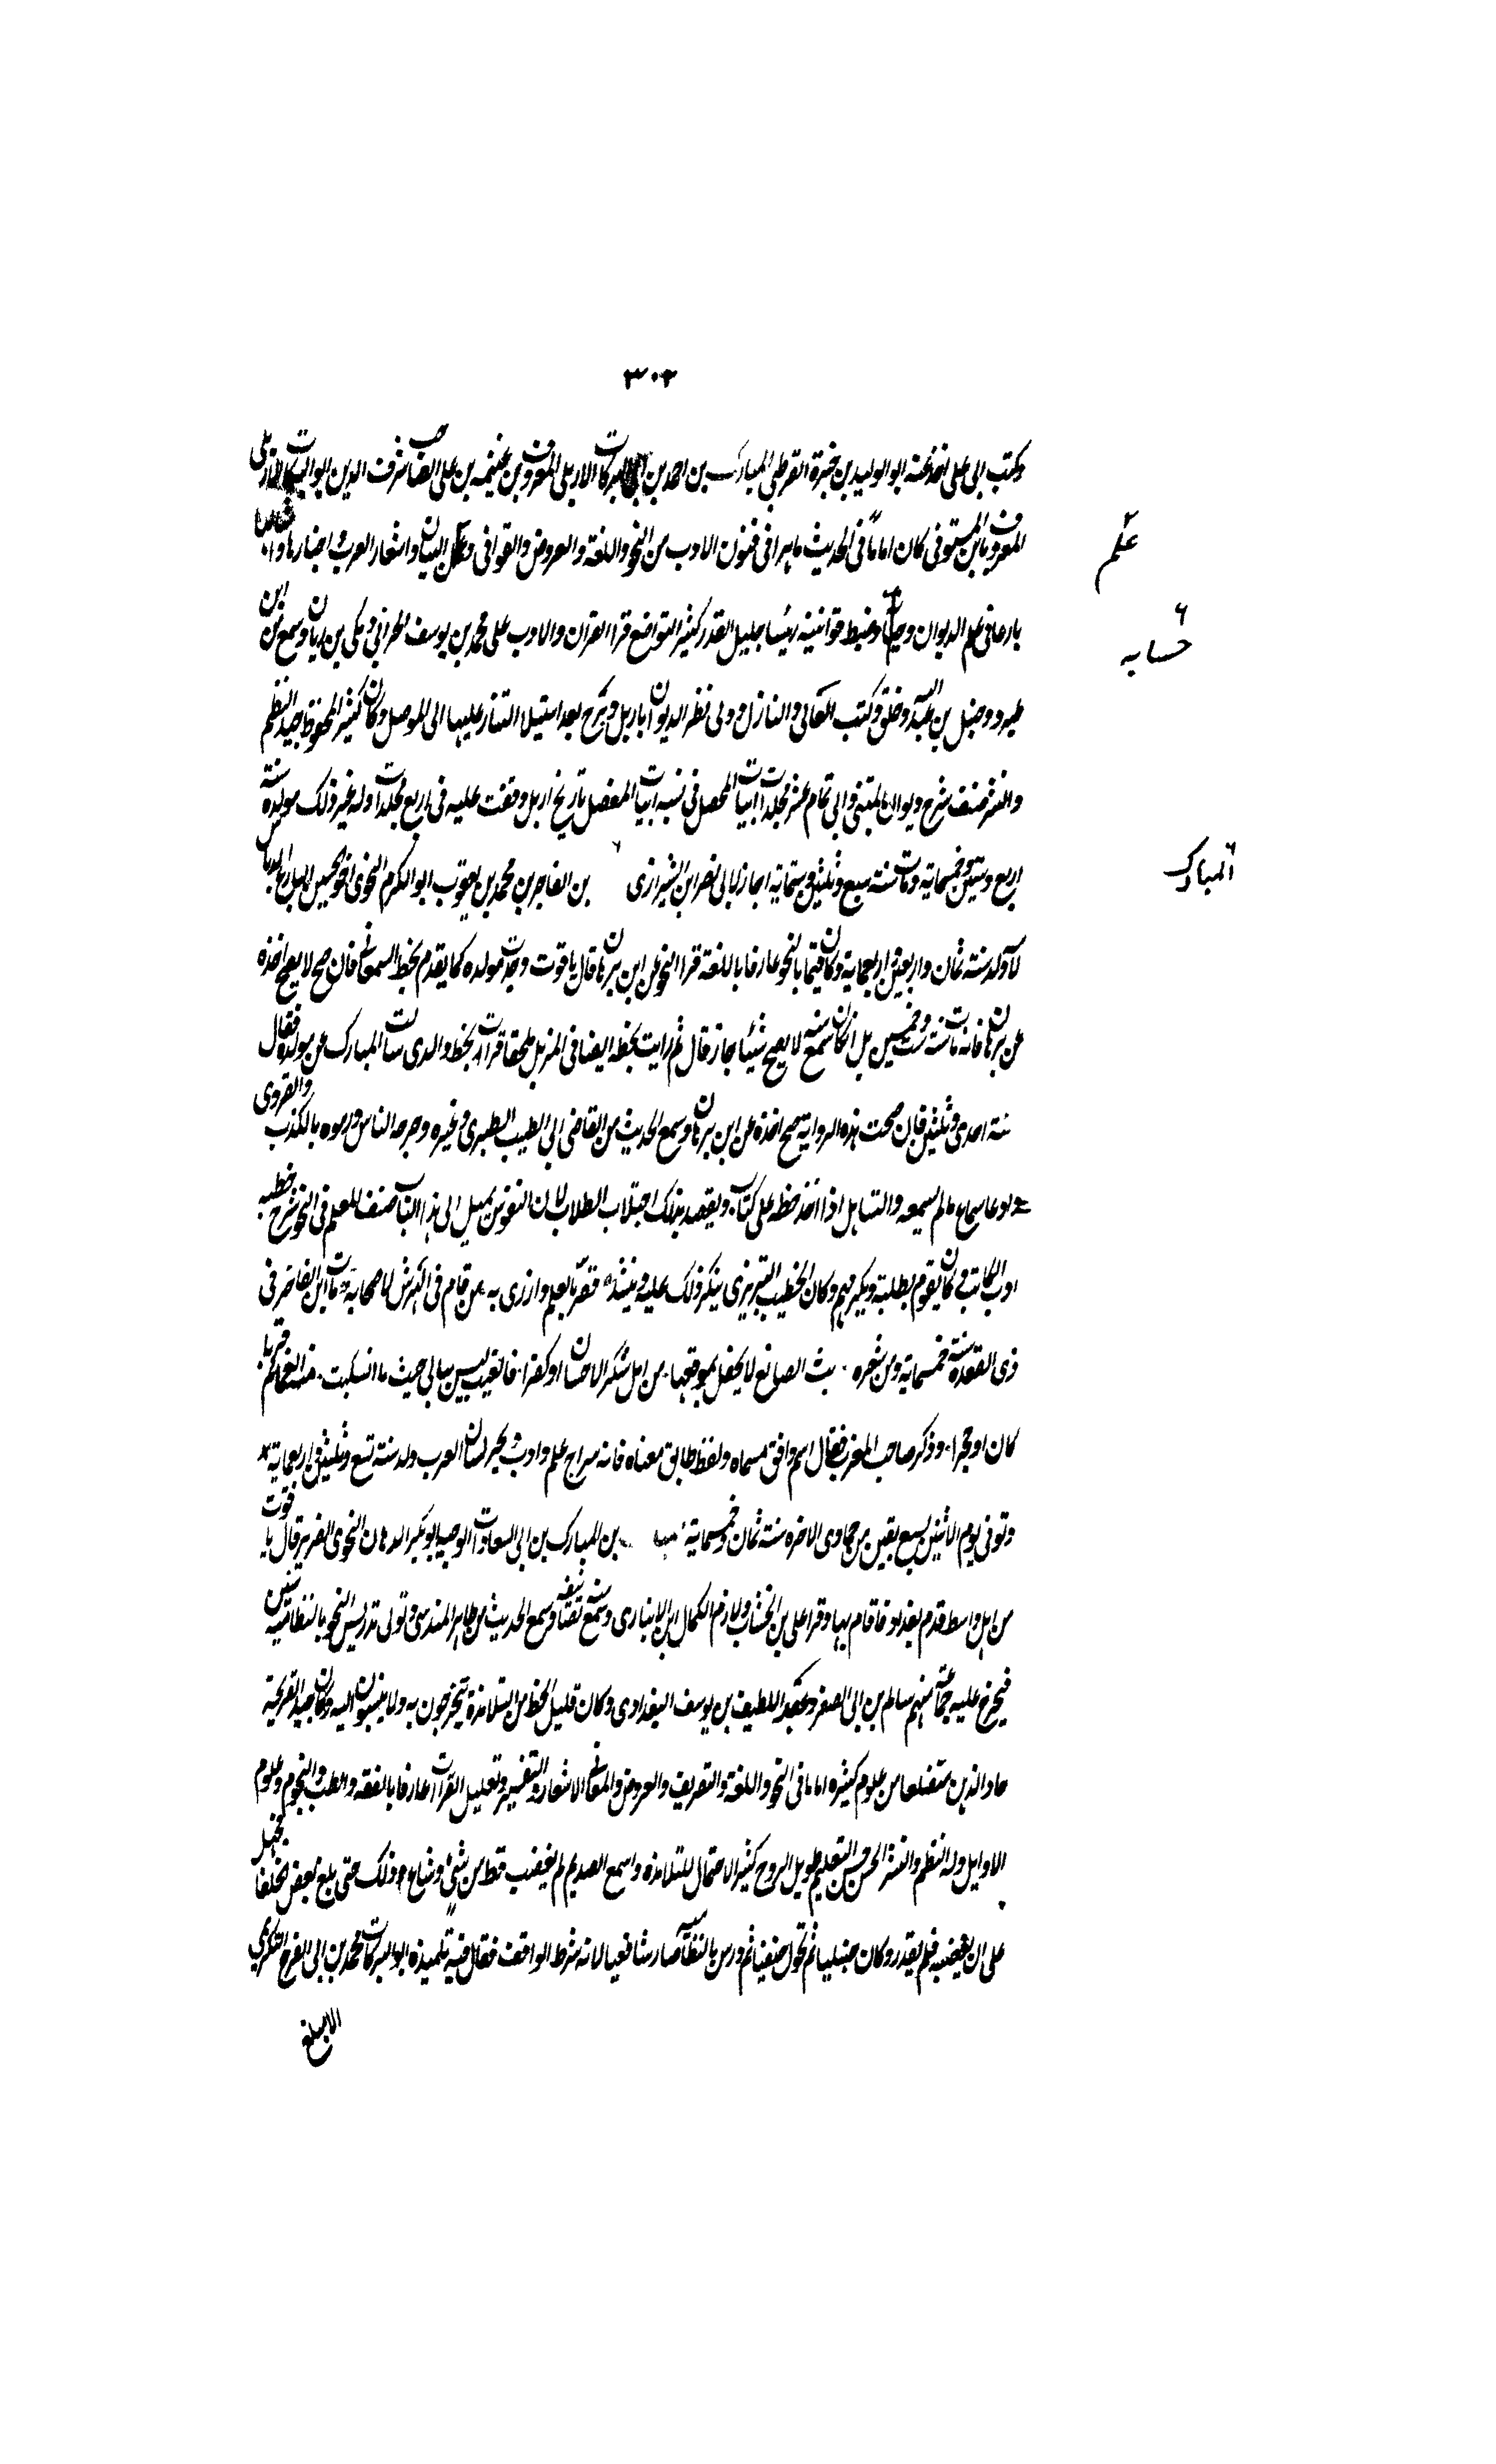 ٣٠٢
وكتب ابى على اخذ عنه ابو الوليد بن خيرة القرطبى المبارك بن احمد بن ابى البركات الاربلى المعروف بن غنيمه بن على الصاحب شرف الدين ابو البركات الاربلى
المعروف بابن المستوفى كان اماما فى الحديث ماهرا فى فنون الادب من النحو واللغة والعروض والقوافى وعلم البيان واشعار العرب واخبارها و
بارعا فى علم الديوان وحسابه وضبط قوانينه رئيسا جليل القدر كثير التواضع قرا القران والادب على محمد بن يوسف البحرانى ومكى بن ريان وسمع من ابن
طبرزد وحنبل بن عبد الله وخلق وكتب العالى والنازل وولى نظر الديوان باربل ونزح بعد استيلا التتار عليها الى الموصل وكان كثير المحفوظ جيد النظم
والنثر صنف شرح ديوان المتنبى وابى تمام عشر مجلدات اثبات المحصل فى نسبة ابيات المفصل تاريخ اربل وقفت عليه فى اربع مجلدات وله غير ذلك مولده سنة
اربع وستين وخمسماية ومات سنة سبع وثلثين وستماية اجاز لابى نصر ابن الشيرازى بن الفاخر بن محمد بن يعقوب ابو الكرم النحوى اخو الحسين
لامه ولد سنة ثمان واربعين اربعماية وكان قيما بالنحو عارفا باللغة قرا النحو عن ابن برهان قال ياقوت وجدت مولده كما يقدم بخط السمعانى فان صح لا يصح اخذه
عن برهان فانه مات سنة ست وخمسين بل ان كان سمع منه لا يصح شيئا جاز قال ثم رايت بخطه ايضا فى المزيل ملحقا قرات بخط والدى سالت المبارك عن مولده فقال
سنة احدى وثلثين فان صحت هذه الرواية صح اخذه عن ابن برهان وسمع الحديث من القاضى ابى الطيب الطبرى وغيره وجرحه الناس ورموه بالكذب والتزوير
وادعا سماع ما لم يسمعه والتساهل اذا اخذ خطه على كتاب ويقصد بذلك اجتلاب الطلاب لان النفوس تميل الى هذا الباب صنف المعلم فى النحو شرح خطبه
ادب الكاتب وكان يقوم لطلبة ويكرمهم وكان الخطيب التبريزى ينكر ذلك عليه وينشد قصر بالعلم وازرى به من قام فى الدرس لاصحابه ومات ابن الفاخر فى
ذى القعدة سنة خمسماية ومن شعره بث الصنايع لا تحفل بموقعها من امل شكر الاحسان او كفرا فالغيث ليس يبالى حيث ما انسكبت منه الغمايم تربا
كان او حجرا وذكر صاحب المغرب فقال اسم وافق مسماه ولفظ طابق معناه فانه سراج علم وادب وبحر لسان العرب ولد سنة تسع وثلثين واربعماية
وتوفى يوم الاثنين لسبع بقين من جمادى الاخره سنة ثمان وخمسماية بن المبارك بن ابى السعادات الوجيه ابو بكر الدهان النحوى الضرير قال ياقوت
من اهل واسط قدم بغداد فاقام بها وقرا على بن الخشاب ولازم الكمال ابن الانبارى وسمع منه تصانيفه وسمع الحديث من طاهر المقدسى وتولى تدريس النحو بالنظامية سنين
فتخرج عليه جماعة منهم سالم بن ابى الصقر وعبد اللطيف بن يوسف البغدادى وكان قليل الحظ من التلامذة يتخرجون به ولا ينسبون اليه وكان جيد القريحة
حاد الذهن متضلعا من علوم كثيره اماما فى النحو واللغة والتصريف والعروض والمعانى الاشعار والتفسير وتعليل القرات عارفا بالفقه والطب والنجوم وعلوم
الاوايل وله النظم والنثر الحسن حسن التعليم طويل الروح كثير الاحتمال للتلامذه واسع الصدر لم يغضب قط من شئ وشاع ذلك حتى بلغ بعض الخلفا
على ان يغضبه فلم يقدر وكان حنبليا ثم تحول حنفيا ثم درس بالنظاميه صار شافعيا لانه شرط الواقف فقال فيه تلميذه ابو البركات محمد بن ابى الفرج التكريتى
الا مبلغ
علم
حسابه
المبارك